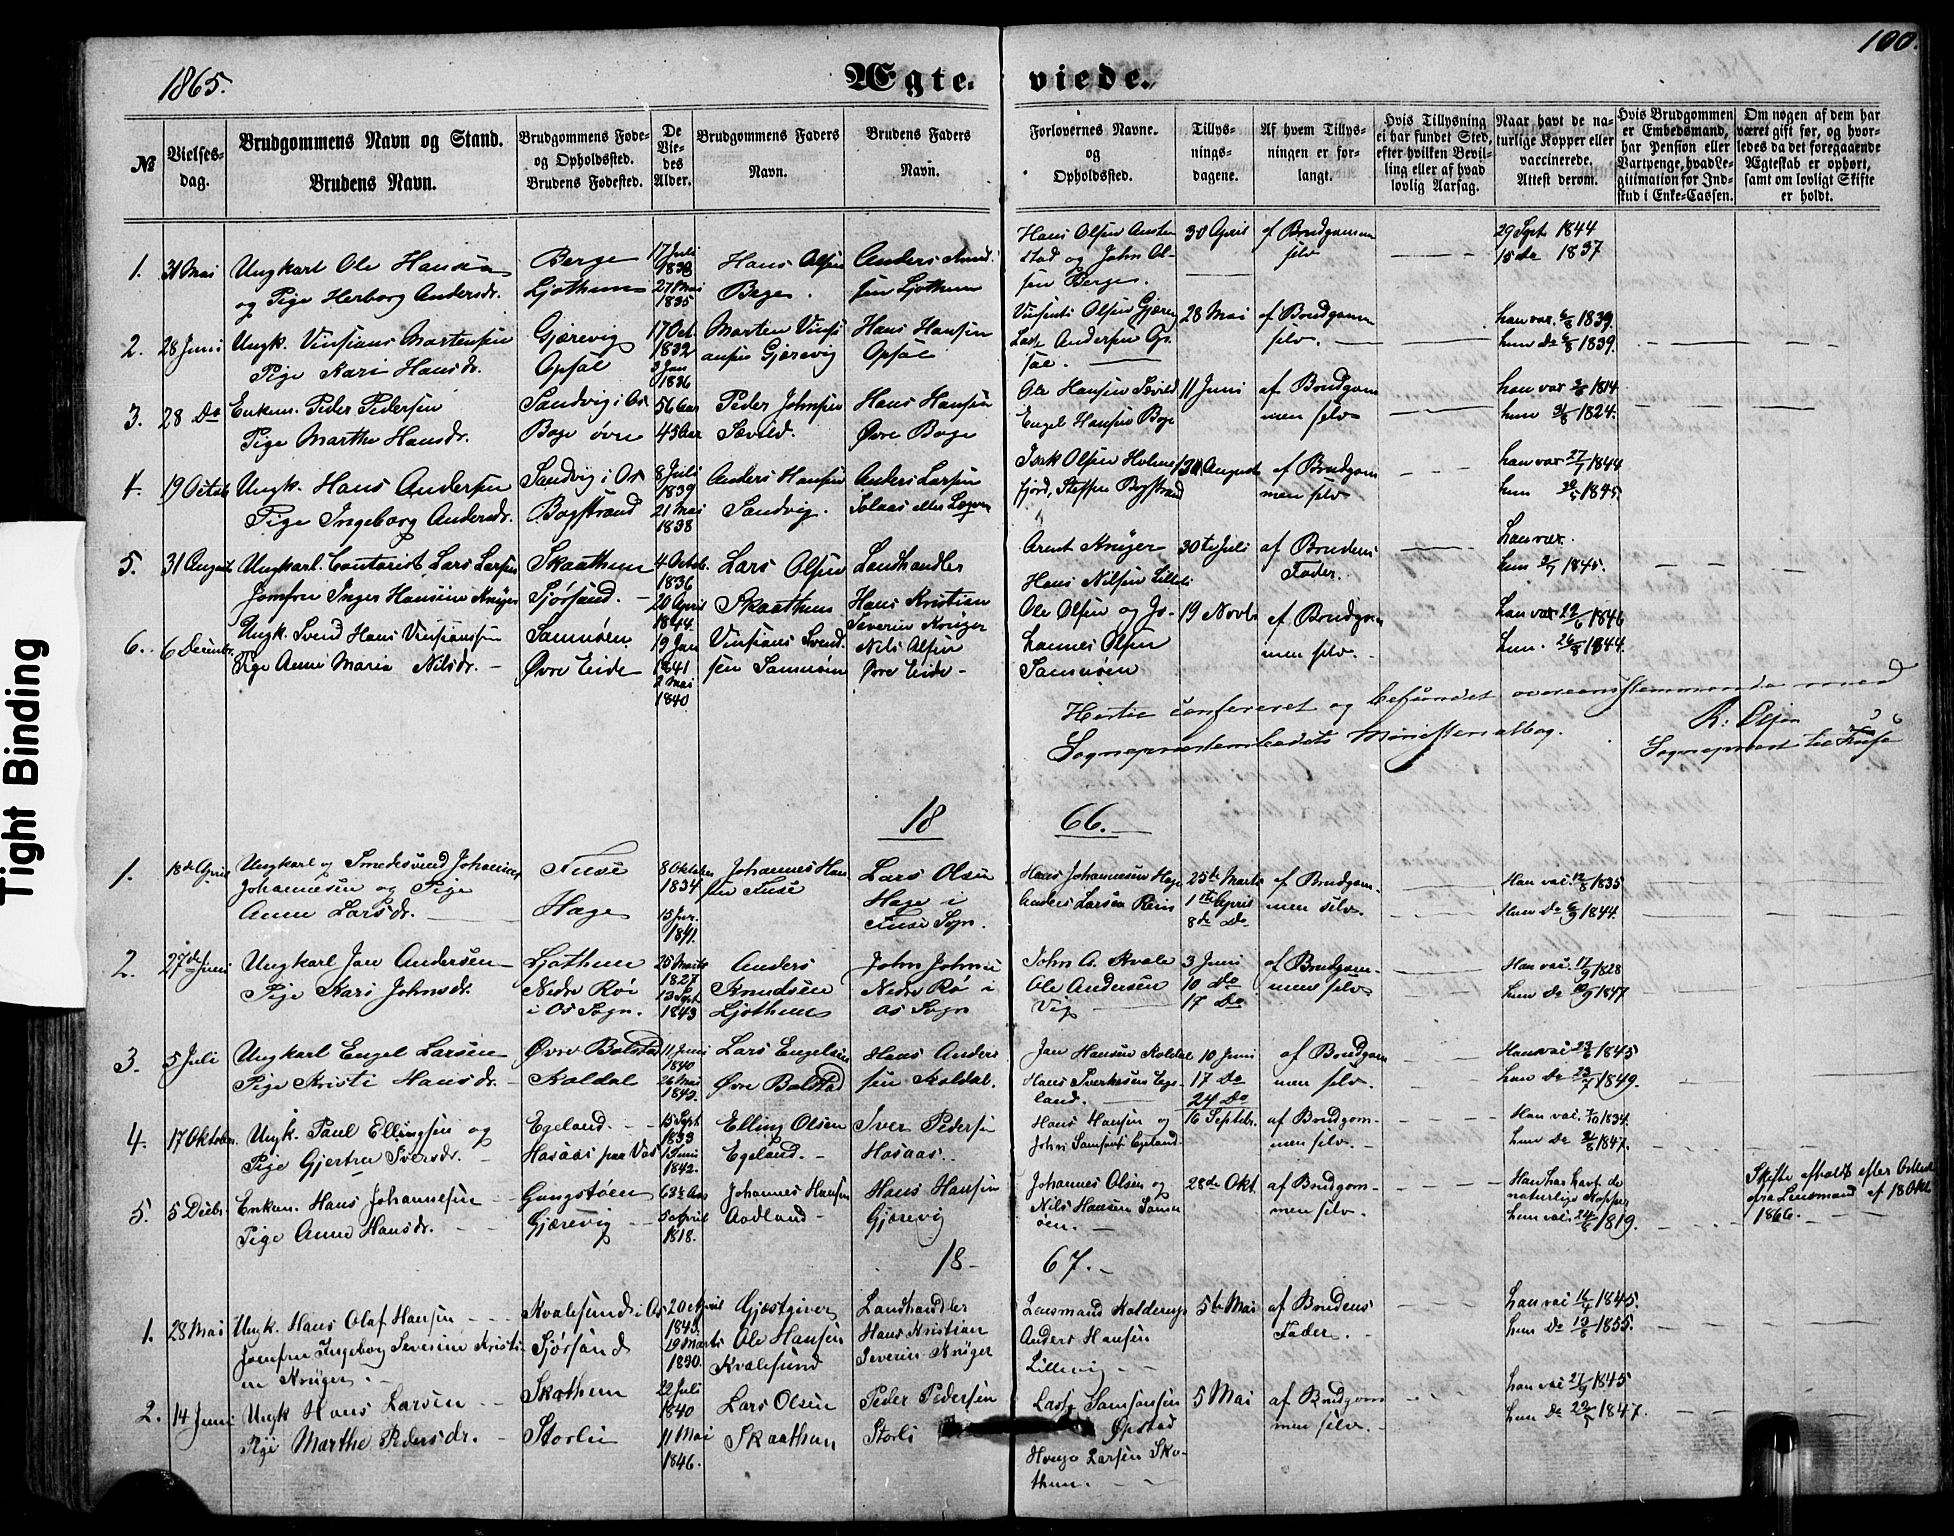 100.
1865.
Ægte-
viede.
№
Vielses-
dag.
Brudgommens Navn og Stand.
Brudens Navn.
Brudgommens Føde-
og Opholdssted.
Brudens Fødested.
De
Vie-
des
Alder.
Brudgommens Faders
Navn.
Brudens Faders
Navn.
Forlovernes Navne.
og
Opholdssted.
Tillys-
nings-
dagene.
Af hvem Tillys-
ningen er for-
langt.
Hvis Tillysning
ei har fundet Sted,
efter hvilken Bevil-
ling eller af hvad
lovlig Aarsag.
Naar havt de na-
turlige Kopper eller
vaccinerede.
Attest derom.
Hvis Brudgommen
er Embedsmand,
har Pension eller
Vartpenge, hvad Le-
gitimation for Ind-
skud i Enke-Cassen.
Om nogen af dem har
været gift før, og hvor-
ledes da det foregaaende
Ægteskab er ophørt,
samt om lovligt Skifte
er holdt.
1. 31 Mai Ungkarl Ole Hansen
og Pige Herborg Andersdr.
Berge
Ljothun
17 Juli
1838
27 Mai
1835
Hans Olsen
Berge.
Anders Knud-
sen Ljothun
Hans Olsen
stad og John Ol-
sen Berge.
30 April
af Brudgommen
selv
29 Sept 1844
15 Do 1837
2. 28 Juni Ungk. Vinsians Martensen
Pige Kari Hansdr.
Gjærevig
Opsal
17 Oct.
1832
3 Jan
1836
Marten Vinsi
ansen Gjærevig
Hans Hansen
Opsal
Vinsents Olsen Gjærevig
Lasse Andersen Op-
sal.
28 Mai
af Brudgommen
selv.
han vac. 6/8 1839.
hun do 6/8 1839.
3. 28 Do Enkem. Peder Pedersen
Pige Marthe Hansdr.
Sandvig i Os
Boge øvre
56 Aar
45 Aar
Peder Johnsen
Sævild.
Hans Hansen
Øvre Boge
Ole Hansen Sævild
Engel Hansen Boge
11 Juni
af Brudgom
men selv
han vac 1814
hun 1824.
4. 19 Octob Ungk. Hans Andersen
Pige Ingeborg Andersdr.
Sandvig i Os
Bogstrand
8 Juli
1839
21 Mai
1838
Anders Hansen
Sandvig.
Anders Larsen
Solaas eller
Isak Olsen Holme
fjord, Steffen Bogstrand
August
af Brudgom
men selv
han vac 27/7 1844
hun 30/5 1845.
5. 31 August Ungkarl. Contorist Lars Larsen
Jomfru Inger Hansine Krüger
Skaathun
Sjørsand.
4 Octob.
1836
20 April
1844
Lars Olsen
Skaathun
Landhandler
Hans Kristian
Severin Krüger
Arent Krüger
Hans Nilsen Lille
30te Juli
af Brudens
Fader.
han vac.
hun 3/7 1845.
6. 6 Decembr. Ungk. Svend Hans Vinsiansen
Pige Anne Maria Nilsdr.
Samnøen
Øvre Eide
19 Jan
1841
2 Mai
1840
Vinsians Svend
sen Samnøen
Nils Olsen
Øvre Eide
Ole Olsen og Jo-
hannes Olsen
Samnøen
19 Novb
af Brudgom
men selv.
han vac 22/6 1846
hun. 26/8 1844.
Hertil confereret og befundet overeensstemmende med
Sogneprestembedets Ministerialbog.
Olsen
Sogneprest til Fuse
18 66.
1. 18de April Ungkarl og Smedesvend Johannes
Johannesen og Pige
Anne Larsdr.
Fuse
Hage
8 Oktober
1834
13 Jn.
1841.
Johannes Han
sen Fuse
Lars Olsen
Hage i
Fuse Sogn.
Hans Johannesen Hage
Anders Larsen Rein
25de Marts
1ste April
8de Do
af Brudgom-
men selv.
Han vac. 12/8 1835
Hun do 6/9 1844.
2. 27de Juni Ungkarl Jan Andersen
Pige Kari Johnsdr.
Ljothun
Nedre Røi
i Os Sogn.
25 Marts
1827
13 Sept
1843
Anders
Knudsen
Ljothun
John Johnse
Nedre Rø i
Os Sogn
John A. Kvale
Ole Andersen
Vig
3 Juni
10 Do
17 Do
af Brudgom-
men selv
Han vac. 17/9 1828
hun do 10/9 1847.
3. 5 Juli Ungkarl Engel Larsen
Pige Kristi Hansdr.
Øvre Bolstad
Koldal
11 Juni
1840
26 Mai
1843.
Lars Engelsen
Øvre Bolstad
Hans Anders
sen Koldal.
Jan Hansen Koldal
Hans Sverkesen Ege-
land.
10 Juni
17 Do
24 Do
af Brudgom
men selv.
Han vac 23/6 1845
hun do 23/7 1849.
4. 17 Oktober. Ungk. Paul Ellingsen og
Pige Gjertru Iversdr.
Egeland.
Hasaas paa Vos
15 Sept
1833
1 Juni
1842.
Elling Olsen
Egeland.
Iver Pedersen
Hasaas.
Hans Hansen og
John Samsons. Egeland.
16 Septbr.
af Brudgom-
men selv.
Han vac. 7/10 1834.
hun do 1847.
5. 5 Decbr. Enkem. Hans Johannesen
Pige Anne Hansdr.
Gungstøen
Gjærevig
63½ Aar
5 April
1818.
Johannes Hansen
Aadland
Hans Hansen
Gjærevig
Johannes Olsen og
Nils Hansen Samn
øen.
28de Okt.
af Brudgom-
men selv.
Han har havt de
naturlige Kopper
hun vac. 24/8 1819.
Skifte afholdt efter
fra Lensmand af 18 Okt
1866.
18 67.
1. 28 Mai Ungk. Hans Olaf Hansen
Jomfru Ingeborg Severine Kristi-
ne Krüger.
Kvalesund i Os
Sjørsand
20 April
1843.
19 Marts
1850.
Gjæstgiver
Ole Hansen
Kvalesund
Landhandler
Hans Kristian
Severin Krüger
Lensmand Koldernp
Anders Hansen
Lillevig
5te Mai
af Brudens
Fader.
han vac 16/4 1845.
hun do 13/8 1855.
2. 14 Juni Ungk Hans Larsen
Pige Marthe Pedersdr.
Skothun
Storlie
22 Juli
1840
11 Mai
1846.
Lars Olsen
Skaathun
Peder Pedersen
Storli
Lasse Samsonsen
Øpstad
Hvega Larsen Sko-
thun.
5 Mai
af Brudgom
men selv.
han vac 27/9 1845
hun do 22/5 1847.
Tight Binding